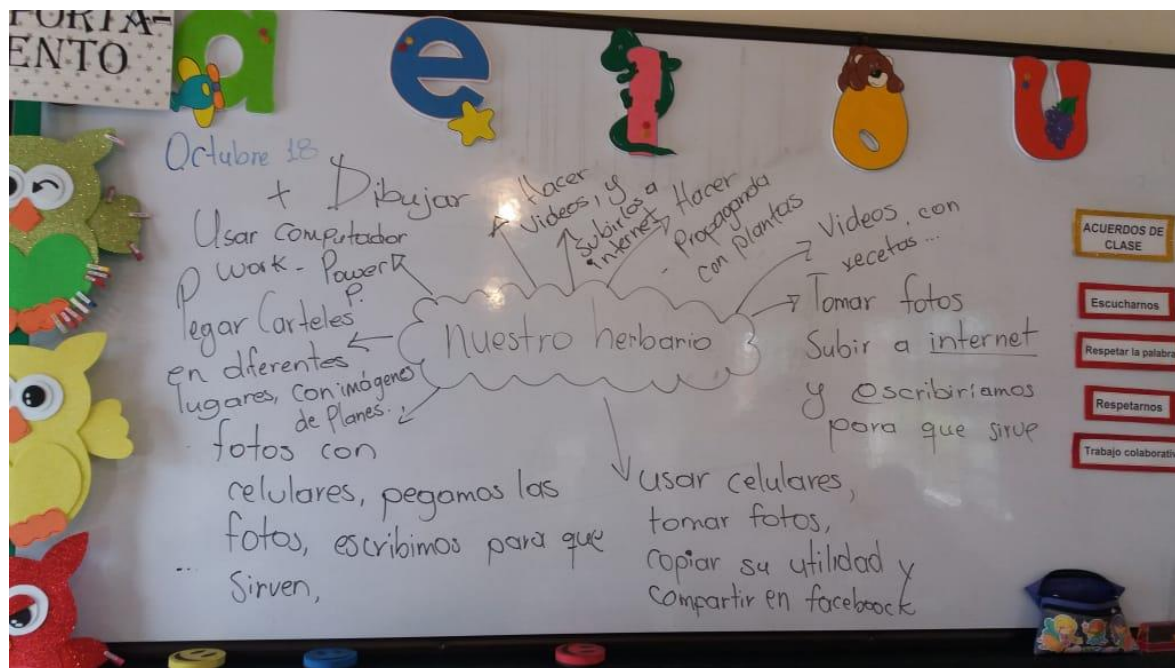 FORTA-
ENTO
a e i o u
Octubre 18
+ Dibujar
Usar computador
work - Power
P.
Pegar Carteles
en diferentes
lugares, con imágenes
de Planes.
fotos con
celulares, pegamos las
fotos, escribimos para que
sirven,
...
Hacer
Videos, y
Subirlos a
internet
Hacer
- Propaganda
con plantas
Videos, con
recetas...
Tomar fotos
Subir a internet
y escribiríamos
para que sirve
nuestro herbario
usar celulares,
tomar fotos,
copiar su utilidad y
compartir en faceboock
ACUERDOS DE
CLASE
Escucharnos
Respetar la palabra
Respetarnos
Trabajo colaborativ